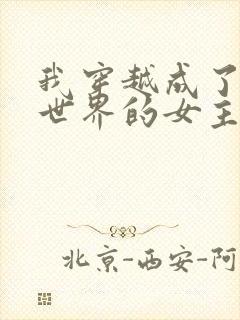 我穿越成了
世界的女主
北京-西安-阿